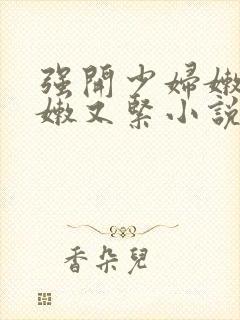 强開少婦嫩
嫩又緊小說
香朵兒